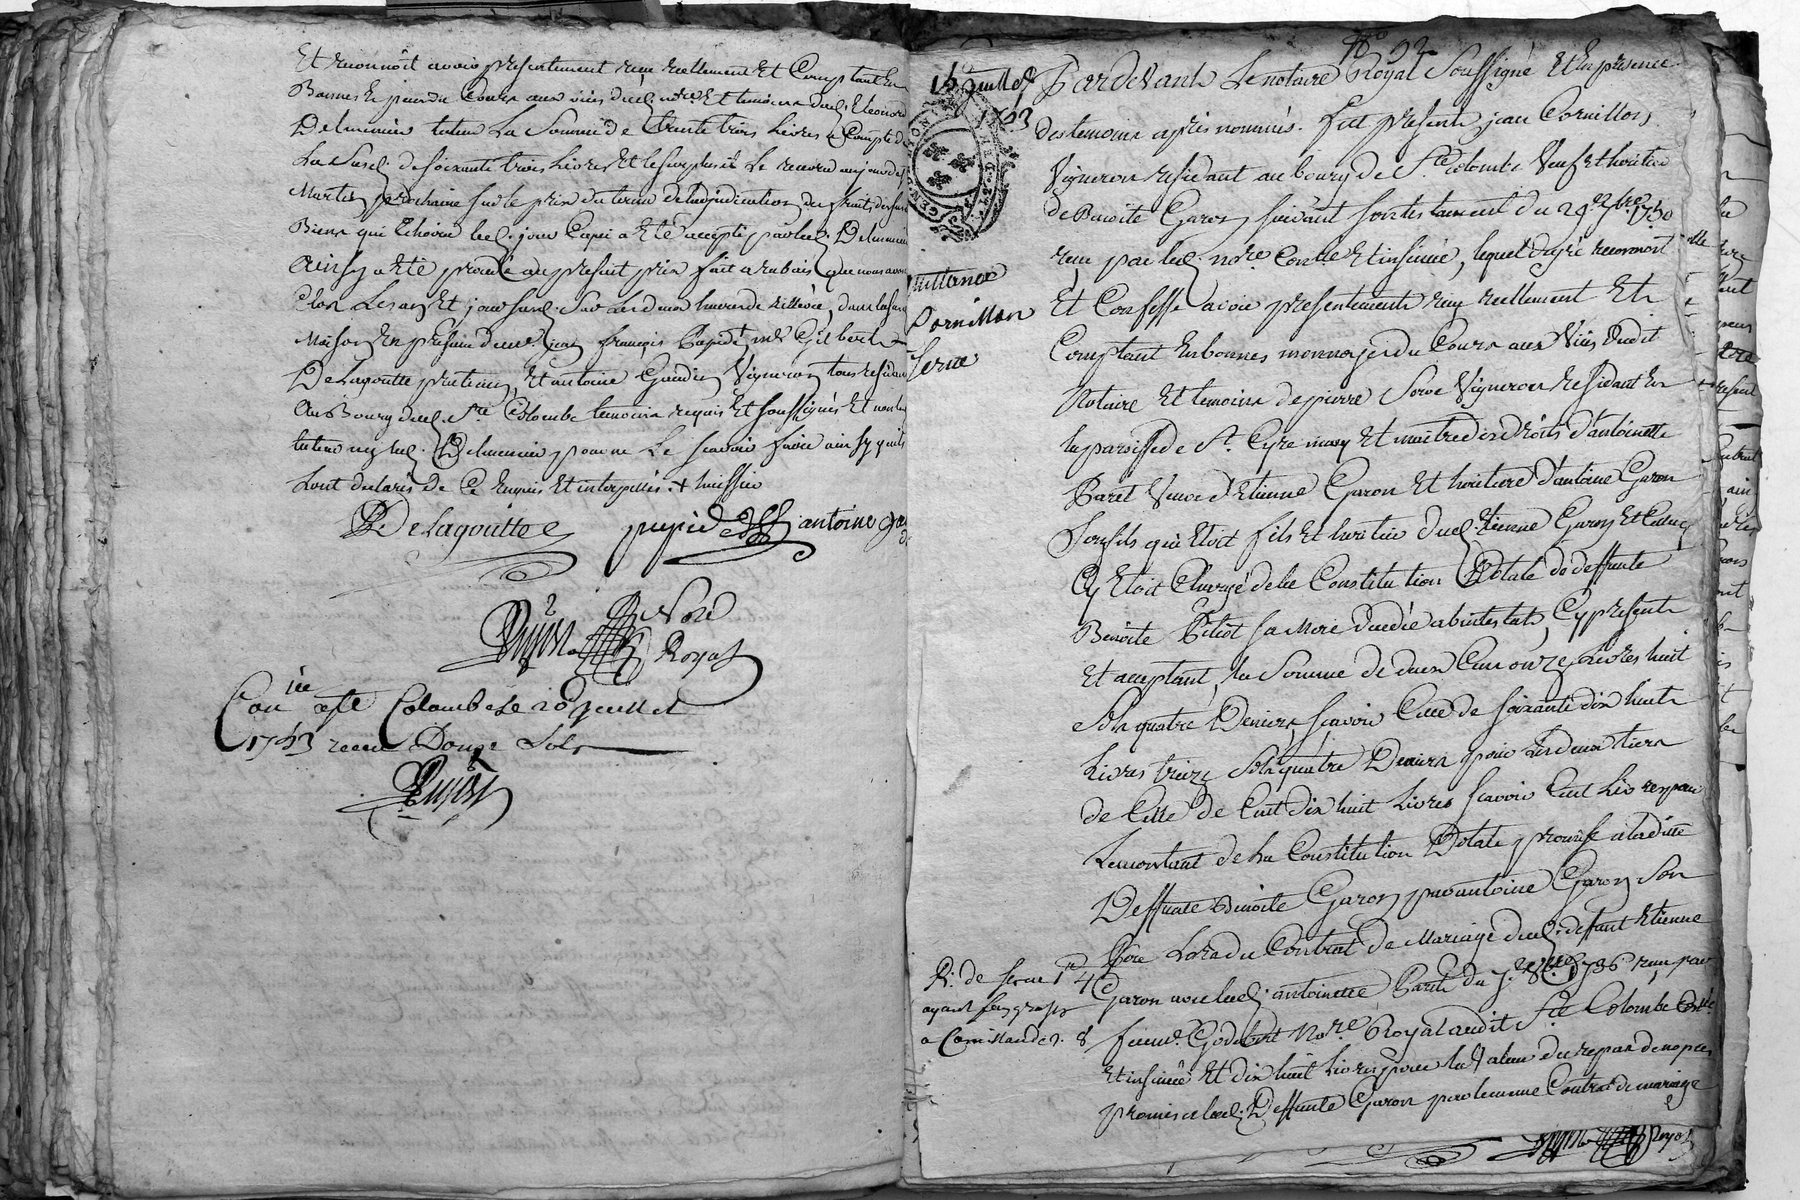 Et reconnoit avoir presentement reçu reellement Et Comptant En
Bonnes Especes du Cours aux vües dud. notre. Et temoins dud. Eleonord
Delmunier tuteur La Somme de trente trois Livres a Compte de
La Susd. de soixante trois Livres Et le surplus il Le recevra au jour de St.
Martin prochaine sur le prix du terme de ladjudication des fruits desd.
Biens qui Echoira led. jour Ce qui a Eté accepté par led. Delmunier
Ainsy a Eté procedé au present prix fait a rabais que nous avons
Clos Les an Et jour susd. Sur Les deux heures de relevée, dans la susd.
Maison En presence de me. jean françois Papidé, me. Gilbert
De Lagoutte praticien, Et antoine Gaudin Vigneron tous residants
Au Bourg dud. Ste. Colombe temoins requis Et soussignés Et non led.
tuteur ny led. Delmunier pour ne Le scavoir faire ainsy quils
Lont declarés de Ce Enquis Et interpellés. + huissier
De Lagoutte papide antoine
Nore
Royal
Con.lée a Ste Colombe le 20 Juillet
1753 receu Douze Sols
No 93
16 Juillet
1753
Quittance
Cornillon
Serve
Pardevant Le notaire Royal Soussigné Et En presence
des temoins apres nommés. fut present jean Cornillon
Vigneron residant au bourg de Ste. Colombe Veuf Et heritier
de Benoite Garon suivant son testament du 29 7bre. 1750
reçu par led. notre. Conlé Et insinué, lequel de gré reconnoit
Et Confesse avoir presentement reçu reellement Et
Comptant En bonnes monnoyes du Cours aux Vües dudit
Notaire Et temoins de pierre Serve Vigneron residant En
la paroisse de St. Cyre mary Et maitre des droits d'antoinette
Baret Veuve d'Etienne Garon Et heritiere d'antoine Garon
Son fils qui Etoit fils Et heritier dud. Etienne Garon Et Celuy
Cy Etoit Chargé de la Constitution Dotale de deffunte
Benoite sa Mere decedée abintestats, Cy present
Et acceptant, la Somme de deux Cent onze Livres huit
Sols quatre Deniers, scavoir Celle de soixante dix huit
Livres treize Sols quatre Deniers pour Les deux tiers
de Celle de Cent dix huit Livres scavoir Cent Livres pour
Le montant de La Constitution Dotale promise a ladite
Deffunte Benoite Garon par antoine Garon Son
Pere Lors du Contrat de Mariage dud. deffunt Etienne
Garon avec lad. antoinette Baret du 7. 8bre. 1736 reçu par
feu me. Godebert Nore. Royal audit Ste Colombe Conlé.
Et insinué Et dix huit Livres pour la Valeur du repas de nopces
promis a lad. Deffunte Garon par le meme Contrat de mariage
R. de Serve 1tt 4
ayant fait grosse
a Cornillon 8
Royal